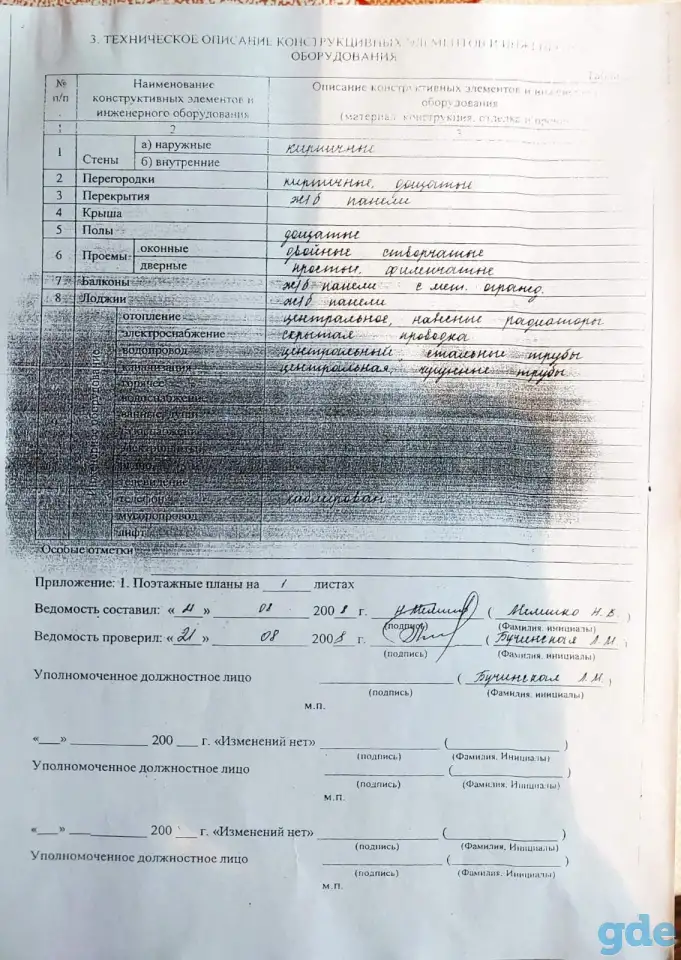 3. ТЕХНИЧЕСКОЕ ОПИСАНИЕ КОНСТРУКЦИВНЫХ ЭЛЕМЕНТОВ И
ОБОРУДОВАНИЯ
№ п/п
Наименование конструктивных элементов и инженерного оборудования
Описание конструктивных элементов и оборудования
(материал, конструкция, отделка и
1 2 3
1 Стены а) наружные кирпичные
б) внутренние
2 Перегородки кирпичные, дощатые
3 Перекрытия ж/б панели
4 Крыша
5 Полы дощатые
6 Проемы: оконные двойные створчатые
дверные простые, филенчатые
7 Балконы ж/б панели с мет. огражд.
8 Лоджии ж/б панели
отопление центральное, навесные радиаторы
электроснабжение скрытая проводка
водопровод центральный, стальные трубы
канализация центральная, чугунные трубы
горячее
водоснабжение
телевидение
телефон
мусоропровод
лифт
Особые отметки
Приложение: 1. Поэтажные планы на 1 листах
Ведомость составил: « 21 » 08 2008 г. ( Мелишко Н. В. )
(подпись) (Фамилия, инициалы)
Ведомость проверил: « 21 » 08 2008 г. ( Бучинская Л. М. )
(подпись) (Фамилия, инициалы)
Уполномоченное должностное лицо ( Бучинская Л. М. )
(подпись) (Фамилия, инициалы)
м.п.
«___» ____________ 200 ___ г. «Изменений нет» ____________ (____________)
(подпись) (Фамилия, Инициалы)
Уполномоченное должностное лицо ____________ (____________)
(подпись) (Фамилия, Инициалы)
м.п.
«___» ____________ 200 ___ г. «Изменений нет» ____________ (____________)
(подпись) (Фамилия, Инициалы)
Уполномоченное должностное лицо ____________ (____________)
(подпись) (Фамилия, Инициалы)
м.п.
gde